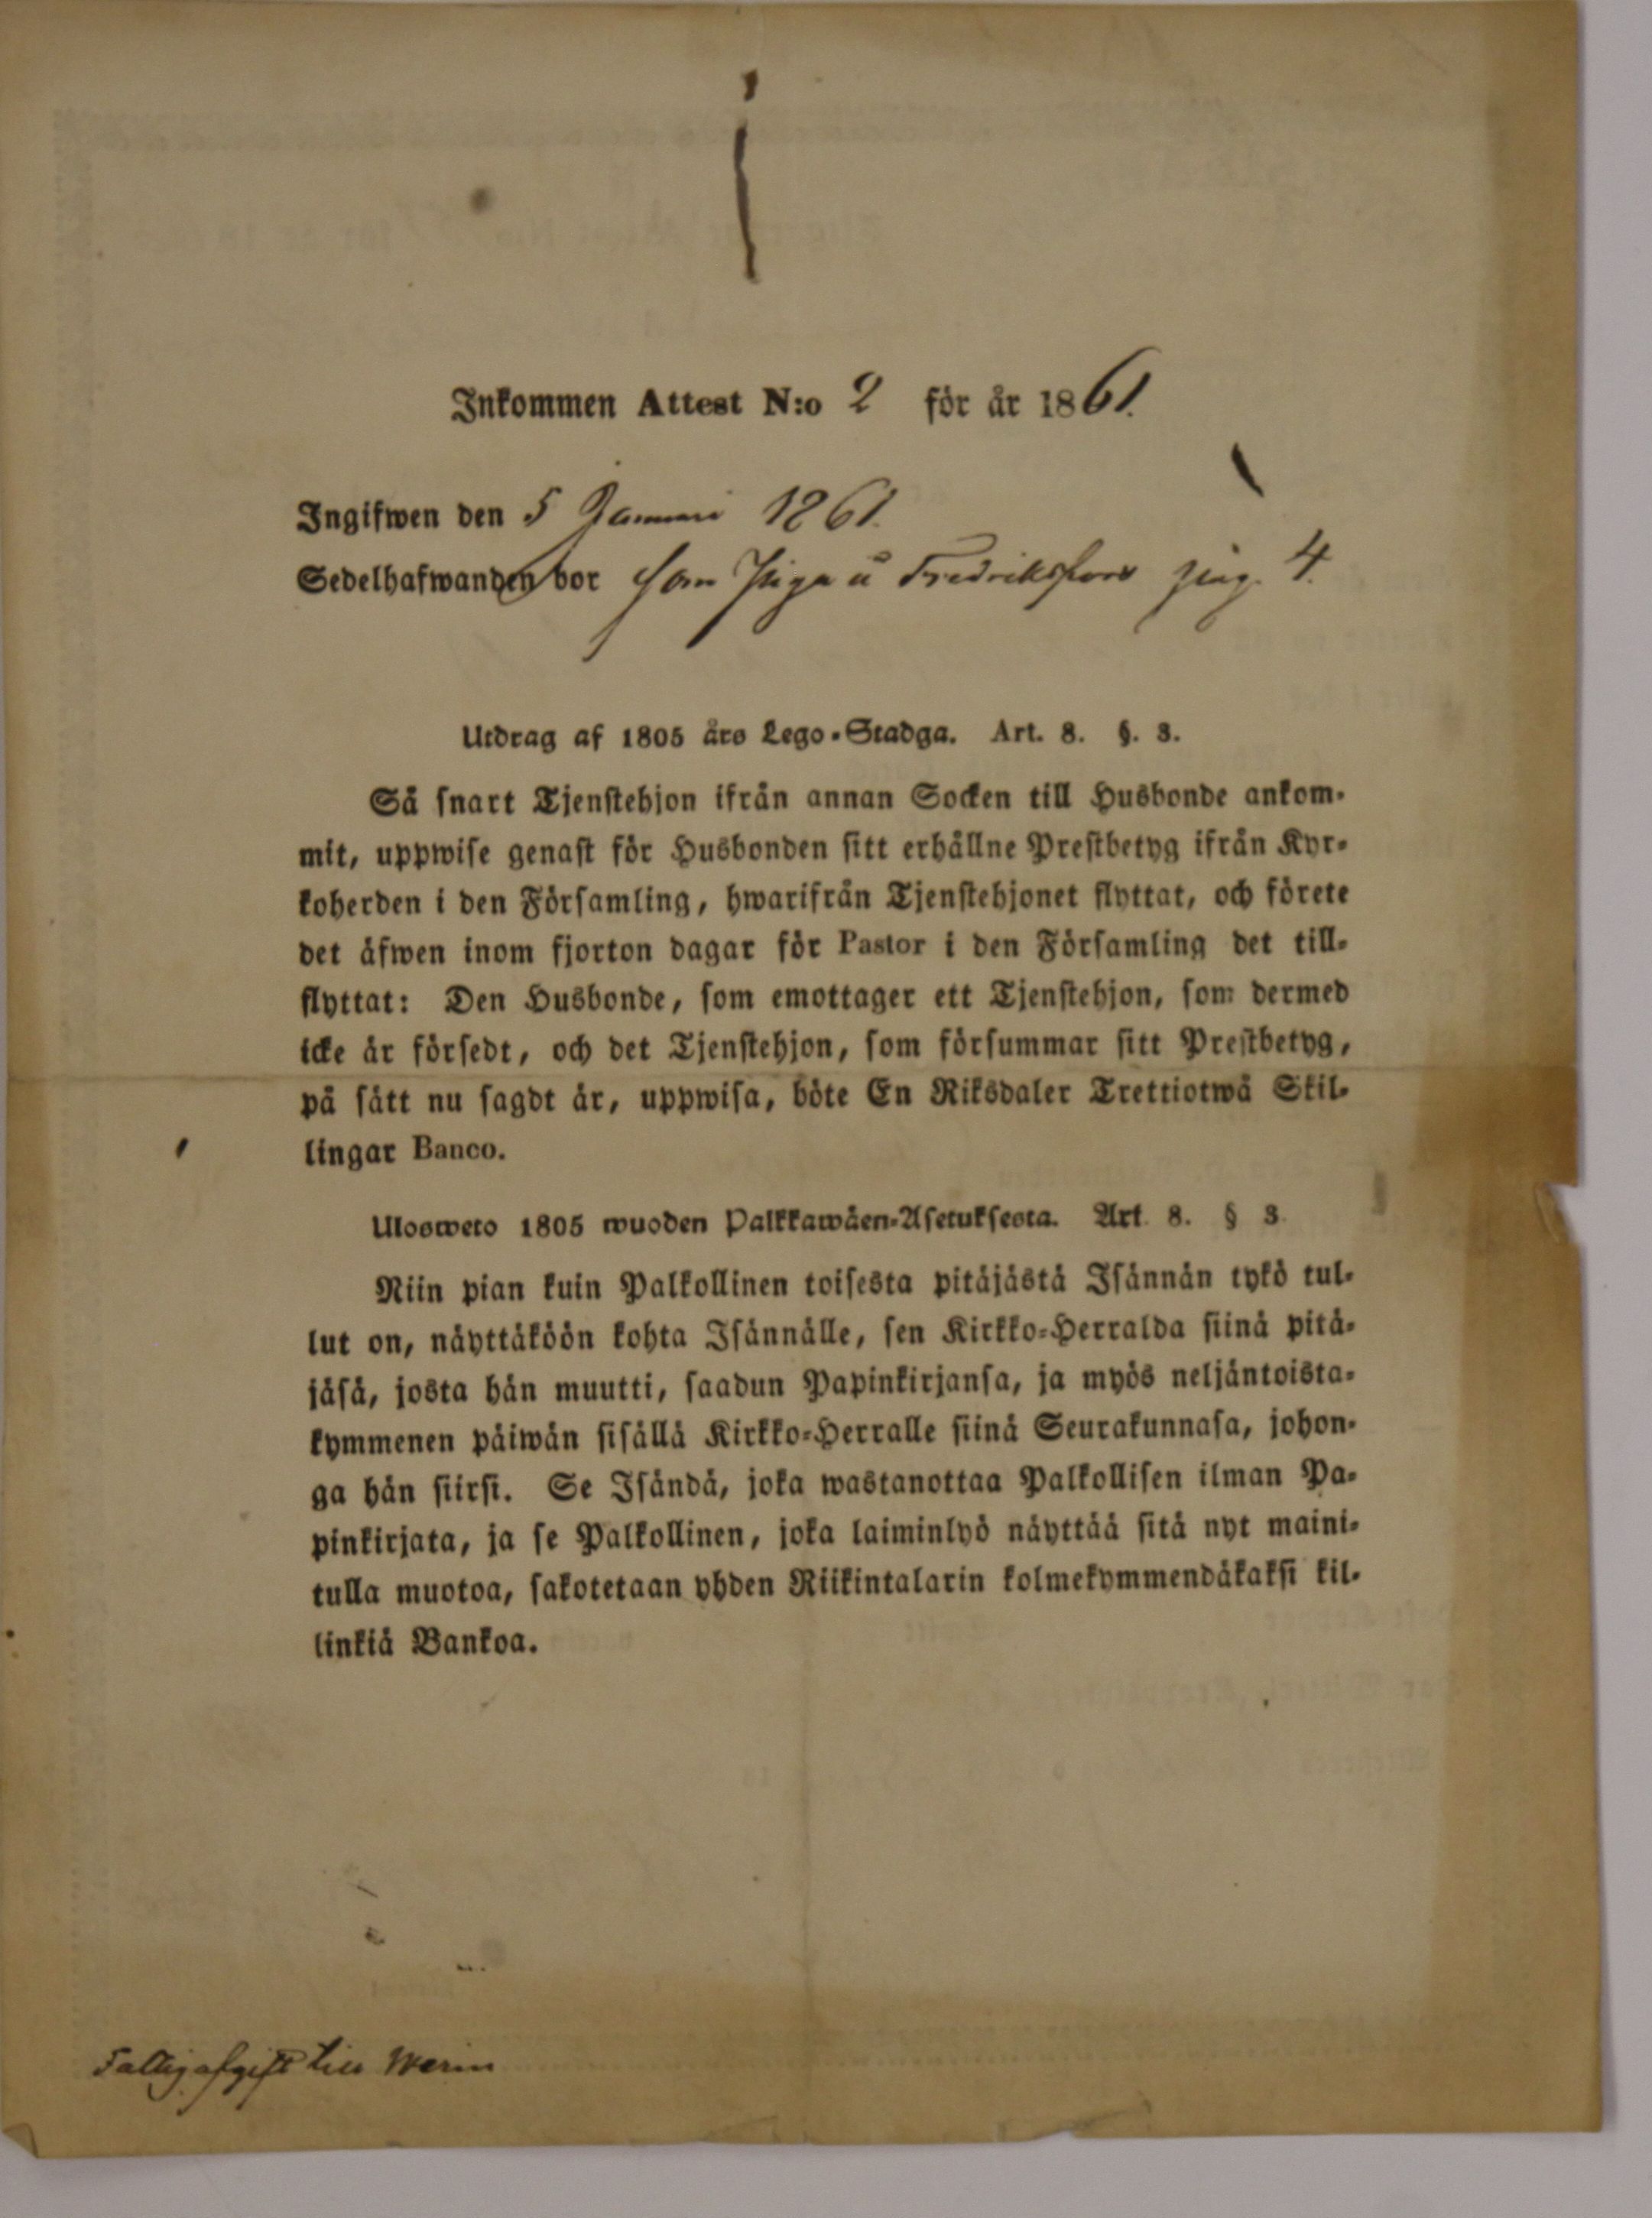 Inkommen Attest N:o 2 för år 1861.
Ingifwen den 5 Januari 1861.
Sedelhafwanden bor som Piga å Fredriksfors pag. 4.
Utdrag af 1805 års Lego-Stadga. Art. 8. §. 3.
Så snart Tjenstehjon ifrån annan Socken till Husbonde ankom-
mit, uppwise genast för Husbonden sitt erhållne Prestbetyg ifrån Kyr-
koherden i den Församling, hwarifrån Tjenstehjonet flyttat, och förete
det äfwen inom fjorton dagar för Pastor i den Församling det till-
flyttat: Den Husbonde, som emottager ett Tjenstehjon, som dermed
icke är försedt, och det Tjenstehjon, som försummar sitt Prestbetyg,
på sätt nu sagdt är, uppwisa, böte En Riksdaler Trettiotwå Skil-
lingar Banco.
Ulosweto 1805 wuoden Palkkawäen-Asetuksesta. Art. 8. § 3.
Niin pian kuin Palkollinen toisesta pitäjästä Isännän tykö tul-
lut on, näyttäköön kohta Isännälle, sen Kirkko-Herralda siinä pitä-
jäsä, josta hän muutti, saadun Papinkirjansa, ja myös neljäntoista-
kymmenen päiwän sisällä Kirkko-Herralle siinä Seurakunnasa, johon-
ga hän siirsi. Se Isändä, joka wastanottaa Palkollisen ilman Pa-
pinkirjata, ja se Palkollinen, joka laiminlyö näyttää sitä nyt maini-
tulla muotoa, sakotetaan yhden Riikintalarin kolmekymmendäkaksi kil-
linkiä Bankoa.
Fattigafgift till